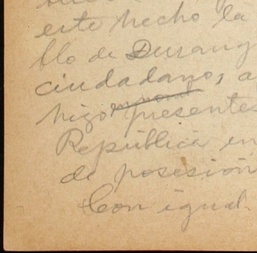 este hecho la
llo de Durang
ciudadano, a
hizo presentes
República en
de posesión
Con igual